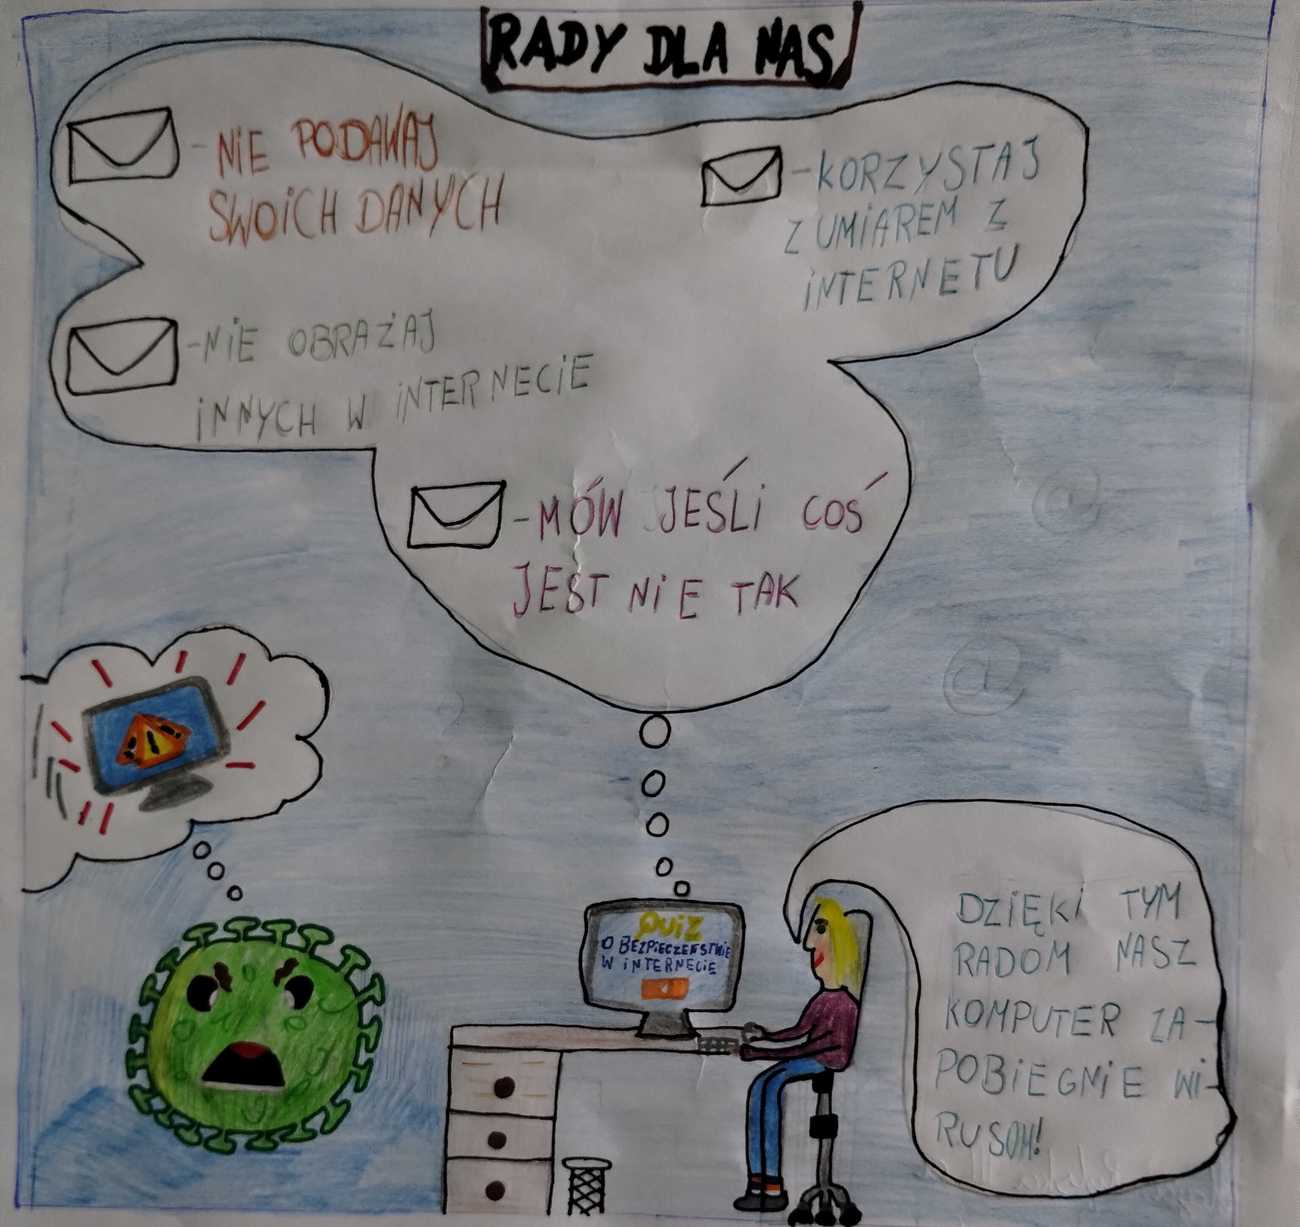 RADY DLA NAS
-NIE PODAWAJ
SWOICH DANYCH
-KORZYSTAJ
Z UMIAREM Z
INTERNETU
-NIE OBRAŻAJ
INNYCH W INTERNECIE
-MÓW JEŚLI COŚ
JEST NIE TAK
QUIZ
O BEZPIECZEŃSTWIE
W INTERNECIE
DZIĘKI TYM
RADOM NASZ
KOMPUTER ZA-
POBIEGNIE WI-
RUSOM!
@
@